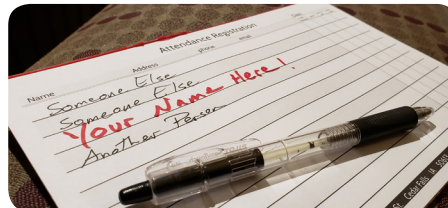 Date
Attendance Registration
Name Address phone email
Someone Else
Someone Else
Your Name Here!
Another Person
Cedar Falls IA